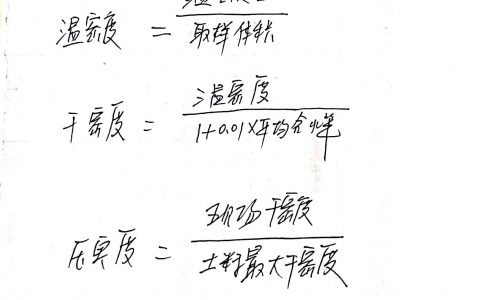 湿密度 = ———
取样体积
干密度 = 湿密度
1+0.01×平均含水率
压实度 = 现场干密度
土料最大干密度